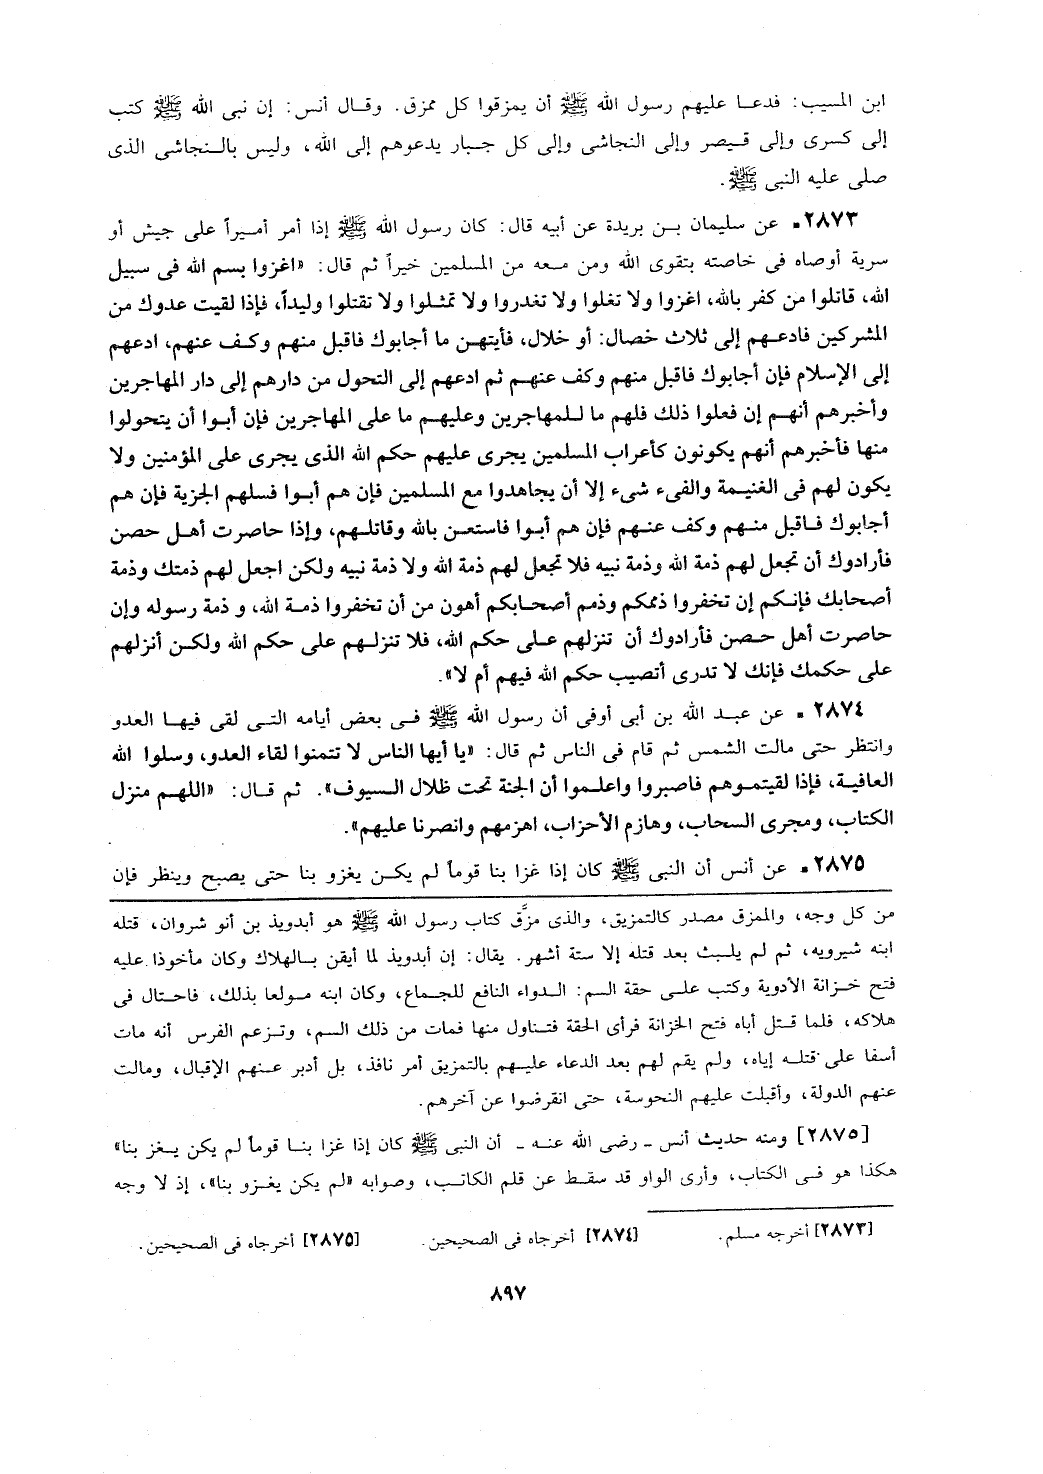 ابن المسيب: فدعا عليهم رسول الله ﷺ أن يمزقوا كل ممزق. وقال أنس: إن نبى الله ﷺ كتب
إلى كسرى وإلى قيصر وإلى النجاشى وإلى كل جبار يدعوهم إلى الله، وليس بالنجاشى الذى
صلى عليه النبى ﷺ.
٢٨٧٣. عن سليمان بن بريدة عن أبيه قال: كان رسول الله ﷺ إذا أمر أميراً على جيش أو
سرية أوصاه فى خاصته بتقوى الله ومن معه من المسلمين خيراً ثم قال: «اغزوا بسم الله فى سبيل
الله، قاتلوا من كفر بالله، اغزوا ولا تغلوا ولا تغدروا ولا تمثلوا ولا تقتلوا وليداً، فإذا لقيت عدوك من
المشركين فادعهم إلى ثلاث خصال: أو خلال، فأيتهن ما أجابوك فاقبل منهم وكف عنهم، ادعهم
إلى الإسلام فإن أجابوك فاقبل منهم وكف عنهم ثم ادعهم إلى التحول من دارهم إلى دار المهاجرين
وأخبرهم أنهم إن فعلوا ذلك فلهم ما للمهاجرين وعليهم ما على المهاجرين فإن أبوا أن يتحولوا
منها فأخبرهم أنهم يكونون كأعراب المسلمين يجرى عليهم حكم الله الذى يجرى على المؤمنين ولا
يكون لهم فى الغنيمة والفىء شىء إلا أن يجاهدوا مع المسلمين فإن هم أبوا فسلهم الجزية فإن هم
أجابوك فاقبل منهم وكف عنهم فإن هم أبوا فاستعن بالله وقاتلهم، وإذا حاصرت أهل حصن
فأرادوك أن تجعل لهم ذمة الله وذمة نبيه فلا تجعل لهم ذمة الله ولا ذمة نبيه ولكن اجعل لهم ذمتك وذمة
أصحابك فإنكم إن تخفروا ذممكم وذمم أصحابكم أهون من أن تخفروا ذمة الله، و ذمة رسوله وإن
حاصرت أهل حصن فأرادوك أن تنزلهم على حكم الله، فلا تنزلهم على حكم الله ولكن أنزلهم
على حكمك فإنك لا تدرى أتصيب حكم الله فيهم أم لا».
٢٨٧٤. عن عبد الله بن أبى أوفى أن رسول الله ﷺ فى بعض أيامه التى لقى فيها العدو
وانتظر حتى مالت الشمس ثم قام فى الناس ثم قال: «يا أيها الناس لا تتمنوا لقاء العدو، وسلوا الله
العافية، فإذا لقيتموهم فاصبروا واعلموا أن الجنة تحت ظلال السيوف». ثم قال: «اللهم منزل
الكتاب، ومجرى السحاب، وهازم الأحزاب، اهزمهم وانصرنا عليهم».
٢٨٧٥. عن أنس أن النبى ﷺ كان إذا غزا بنا قوماً لم يكن يغزو بنا حتى يصبح وينظر فإن
من كل وجه، والممزق مصدر كالتمزيق، والذى مزَّق كتاب رسول الله ﷺ هو أبدويذ بن أنو شروان، قتله
ابنه شيرويه، ثم لم يلبث بعد قتله إلا ستة أشهر. يقال: إن أبدويذ لما أيقن بالهلاك وكان مأخوذا عليه
فتح خزانة الأدوية وكتب على حقة السم: الدواء النافع للجماع، وكان ابنه مولعا بذلك، فاحتال فى
هلاكه، فلما قتل أباه فتح الخزانة فرأى الحقة فتناول منها فمات من ذلك السم، وتزعم الفرس أنه مات
أسفا على قتله إياه، ولم يقم لهم بعد الدعاء عليهم بالتمزيق أمر نافذ، بل أدبر عنهم الإقبال، ومالت
عنهم الدولة، وأقبلت عليهم النحوسة، حتى انقرضوا عن آخرهم.
[٢٨٧٥] ومنه حديث أنس ـ رضى الله عنه ـ أن النبى ﷺ كان إذا غزا بنا قوماً لم يكن يغز بنا»
هكذا هو فى الكتاب، وأرى الواو قد سقط عن قلم الكاتب، وصوابه «لم يكن يغزو بنا»، إذ لا وجه
[٢٨٧٣] أخرجه مسلم. [٢٨٧٤] أخرجاه فى الصحيحين. [٢٨٧٥] أخرجاه فى الصحيحين.
٨٩٧